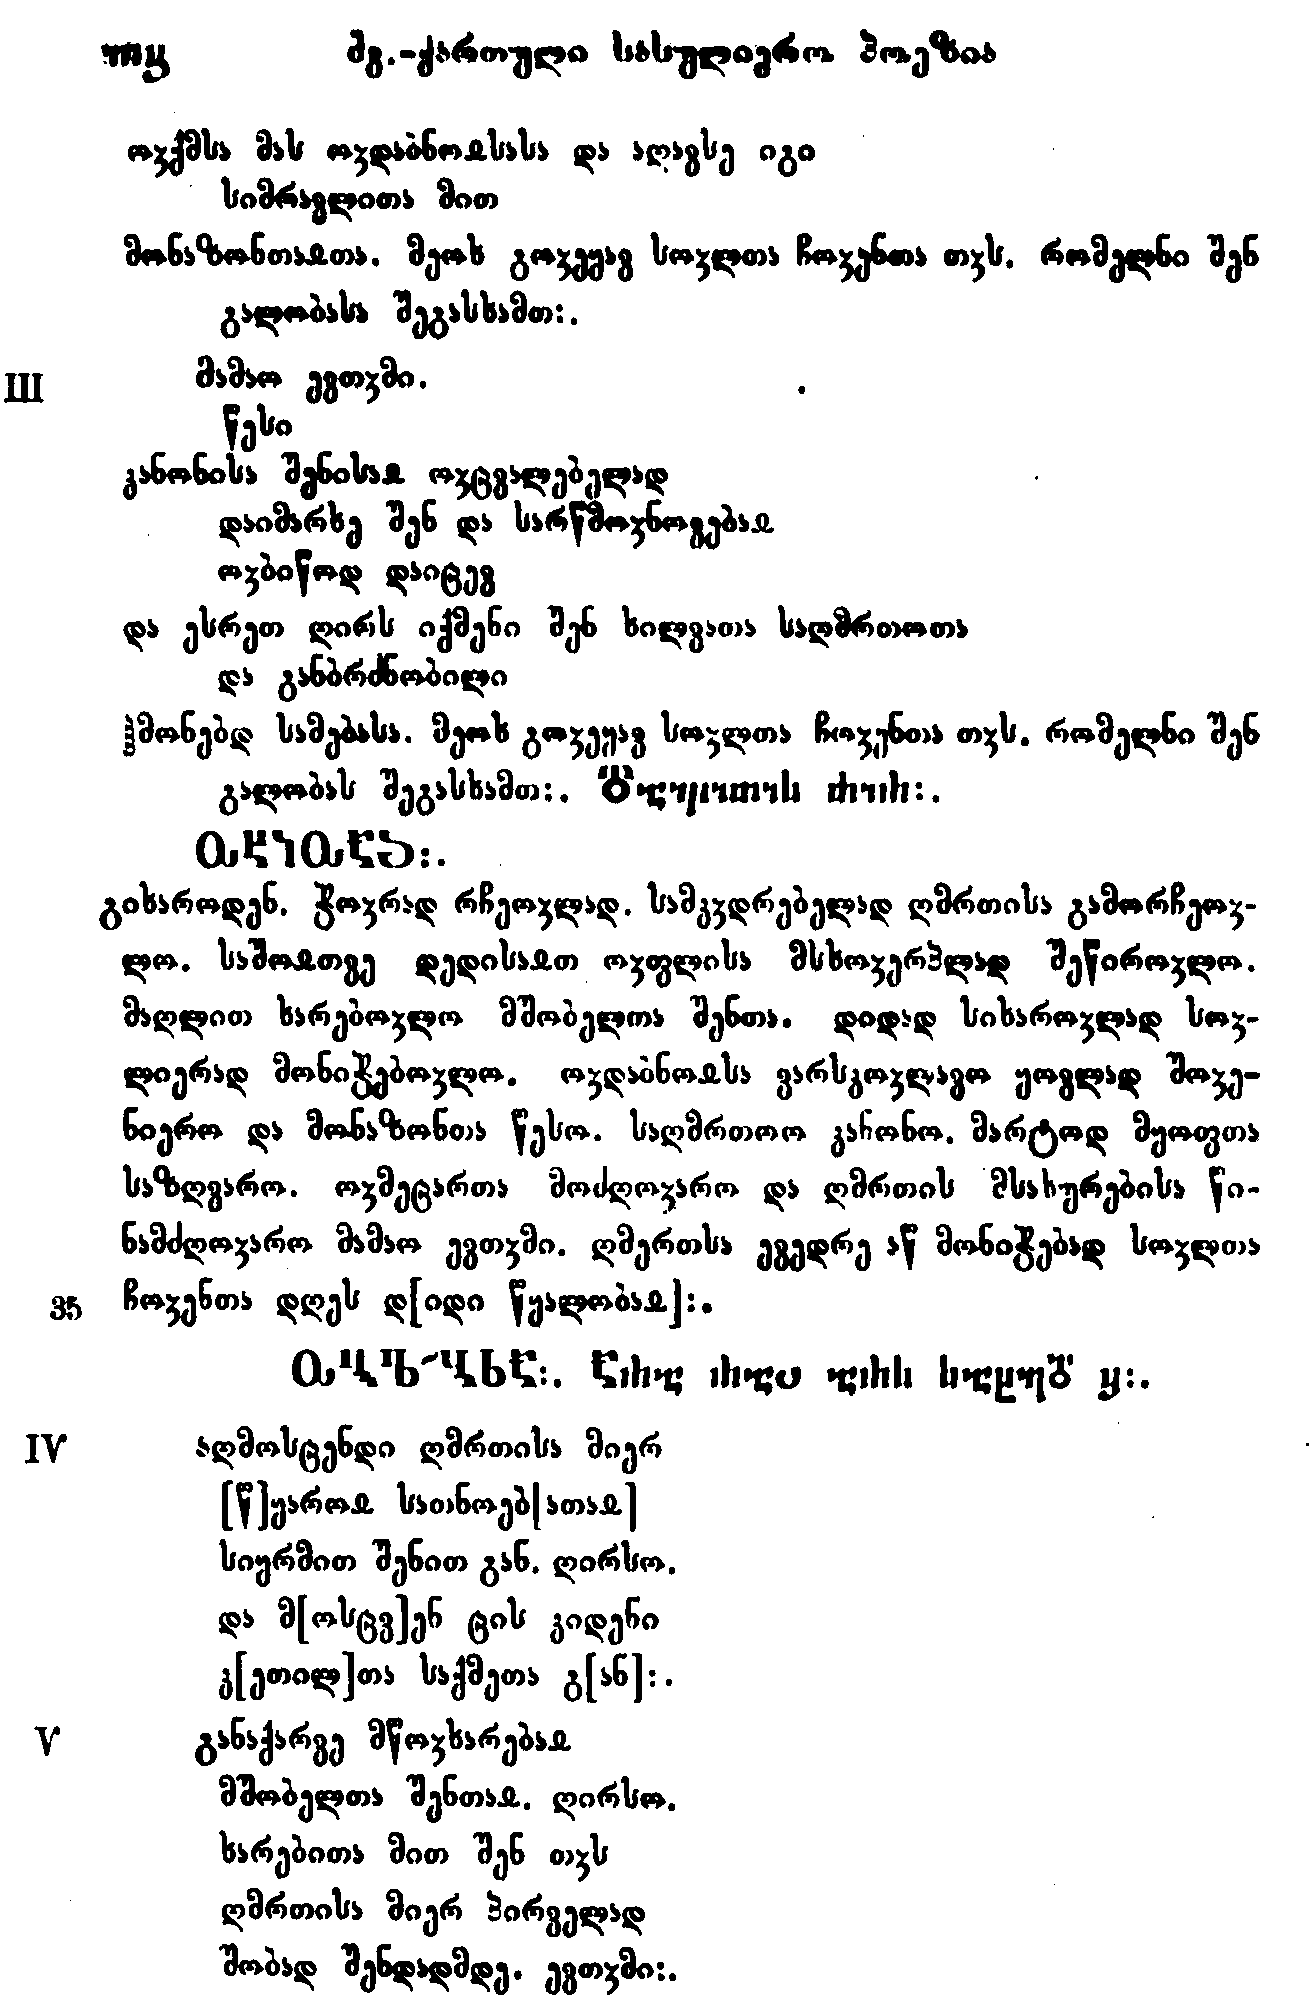 შგ.-ქართული სასულიერო პოეზია
ოჳქმსა მას ოჳდაბნოჲსასა და აღავსე იგი
სიმრავლითა მით
მონაზონთაჲთა. მეოხ გოჳეყავ სოჳლთა ჩოჳენთა თჳს. რომელნი შენ
გალობასა შეგასხამთ:.
III მამაო ევთჳმი.
წესი
კანონისა შენისაჲ ოჳცვალებელად
დაიმარხე შენ და სარწმოჳნოვებაჲ
ოჳბიწოდ დაიცევ
და ესრეთ ღირს იქმენი შენ ხილვათა საღმრთოთა
და განბრძნობილი
ჰმონებდ სამებასა. მეოხ გოჳეყავ სოჳლთა ჩოჳენთა თჳს. რომელნი შენ
გალობას შეგასხამთ:.
გიხაროდენ. ჭოჳრად რჩეოჳლად. სამკჳდრებელად ღმრთისა გამორჩეოჳ-
ლო. საშოჲთვე დედისაჲთ ოჳფლისა მსხოჳერპლად შეწიროჳლო.
მაღლით ხარებოჳლო მშობელთა შენთა. დიდად სიხაროჳლად სოჳ-
ლიერად მონიჭებოჳლო. ოჳდაბნოჲსა ვარსკოჳლავო ყოვლად შოჳე-
ნიერო და მონაზონთა წესო. საღმრთოო კანონო. მარტოდ მყოფთა
საზღვარო. ოჳმეცართა მოძღოჳარო და ღმრთის მსახურებისა წი-
ნამძღოჳარო მამაო ევთჳმი. ღმერთსა ევედრე აწ მონიჭებად სოჳლთა
35 ჩოჳენთა დღეს დ[იდი წყალობაჲ]:.
IV აღმოსცენდი ღმრთისა მიერ
[წ]ყაროჲ სათნოებ[ათაჲ]
სიყრმით შენით გან. ღირსო.
და მ[ოსცვ]ენ ცის კიდენი
კ[ეთილ]თა საქმეთა გ[ან]:.
V განაქარვე მწოჳხარებაჲ
მშობელთა შენთაჲ. ღირსო.
ხარებითა მით შენ თჳს
ღმრთისა მიერ პირველად
შობად შენდადმდე. ევთჳმი:.